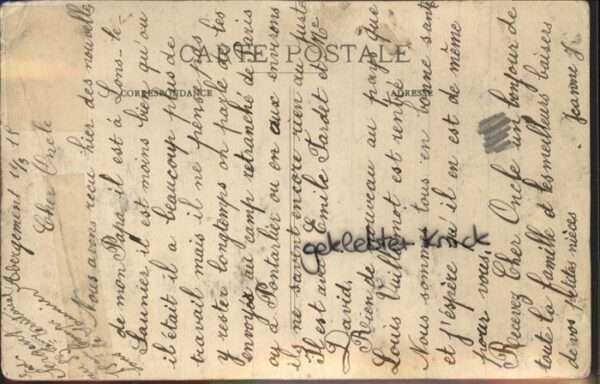 CARTE POSTALE
CORRESPONDANCE
ADRESSE
Abergement 16/3 15
Cher Oncle
Nous avons reçu hier des nouvelles
de mon Papa il est à Lons-le-
Saunier il est moins bien qu'ou
il était il a beaucoup plus de
travail mais il ne pense pas
y rester longtemps on parle de les
envoyer au camp retranché de Paris
ou à Pontarlier ou en aux environs
ils ne savent encore rien au juste
il est avec Emile Tardet et Mc
David.
Rien de nouveau au pays que
Louis Vuillemot est renforcé
Nous sommes tous en bonne santé
et j'espère qu'il en est de même
pour vous.
Recevez Cher Oncle un bonjour de
toute la famille et les meilleurs baisers
de vos petites nièces
Jeanne J
geklebter Knick